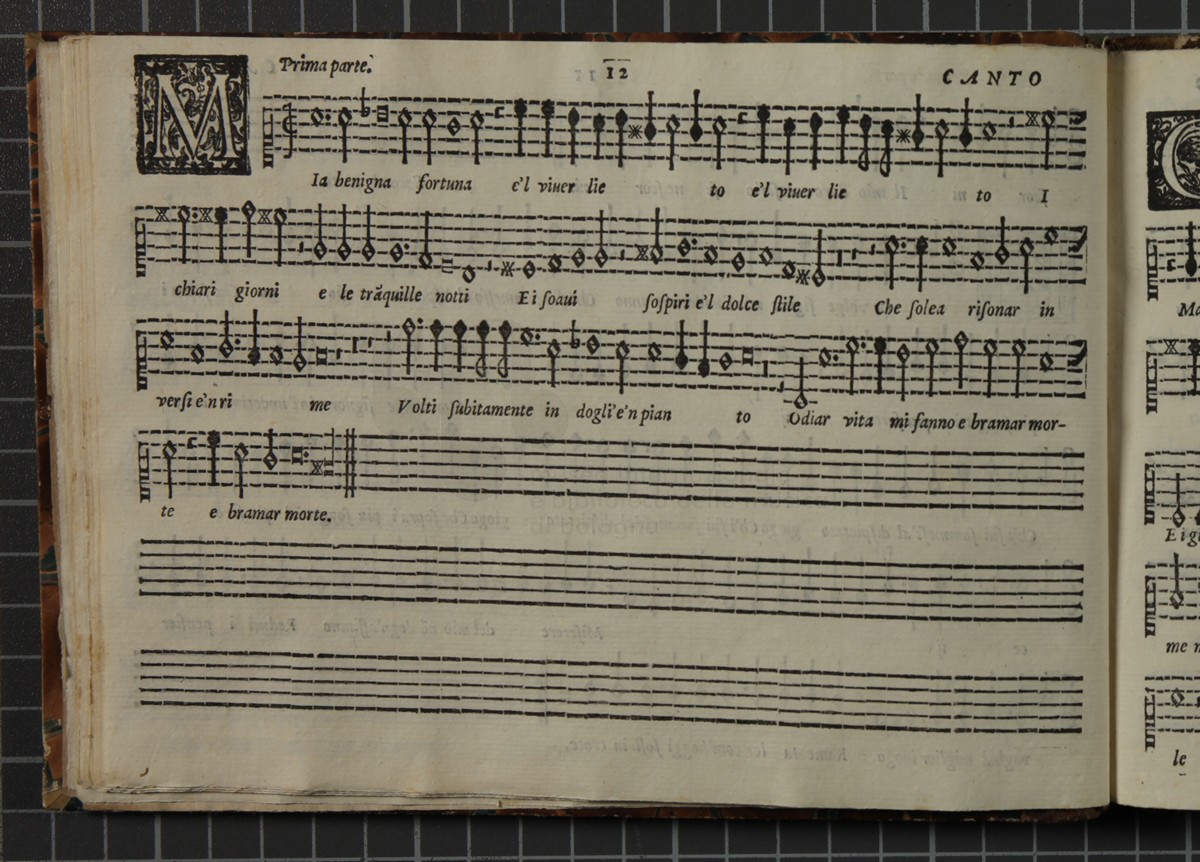 Prima parte. 12 CANTO
MIa benigna fortuna e'l viuer lie to e'l viuer lie to I
chiari giorni e le trãquille notti Ei soaui sospiri e'l dolce stile Che solea risonar in
versi e'n ri me Volti subitamente in dogli e'n pian to Odiar vita mi fanno e bramar mor-
te e bramar morte.
Ma
E i gi
me n
le